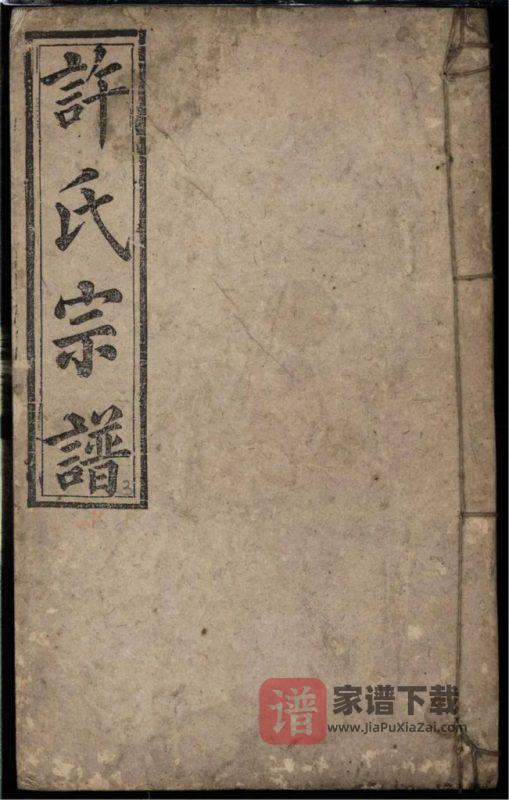 許氏宗譜
2
谱
家谱下载
www.JiaPuXiaZai.com